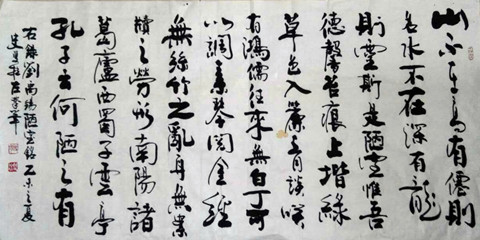 山不在高有僊則
名水不在深有龍
則靈斯是陋室惟吾
德馨苔痕上堦綠
草色入簾青談笑
有鴻儒往來無白丁可
以調素琴閱金經
無絲竹之亂耳無案
牘之勞形南陽諸
葛廬西蜀子雲亭
孔子云何陋之有
右錄劉禹錫陋室銘乙未之夏